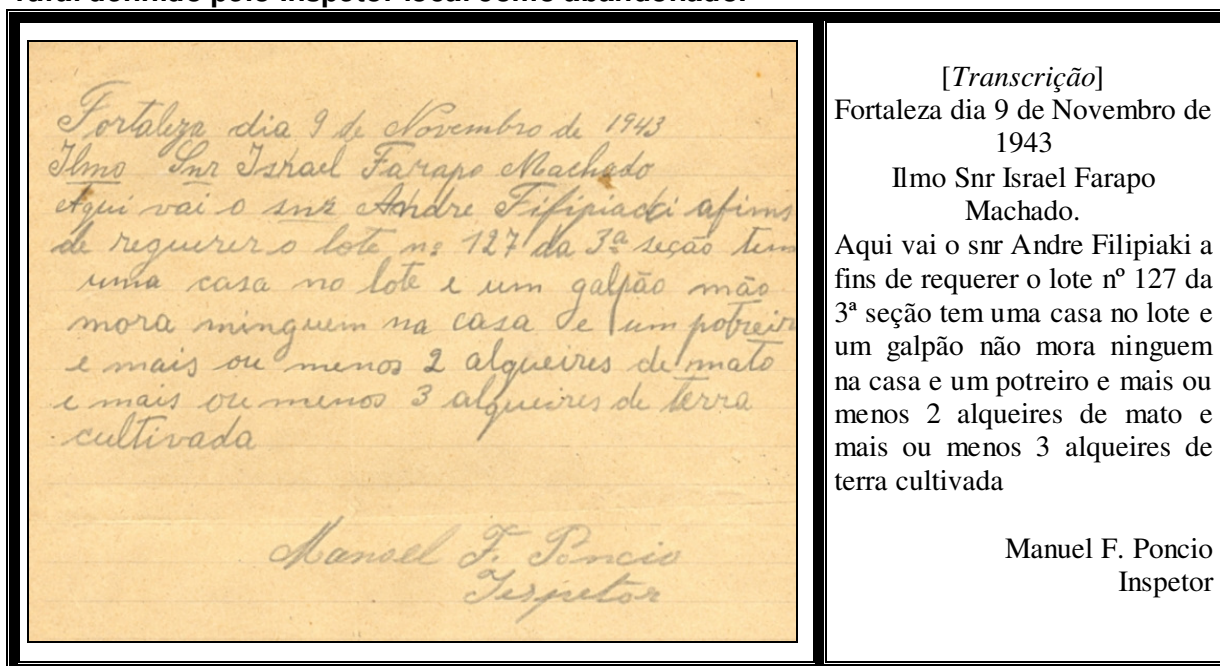 rural definido pelo inspetor local como abandonado.
Fortaleza dia 9 de Novembro de 1943
Ilmo Snr Israel Farapo Machado
Aqui vai o snr Andre afims
de requerer o lote nº 127 da 3ª seção tem
uma casa no lote e um galpão não
mora ninguem na casa e um potreir
e mais ou menos 2 alqueires de mato
e mais ou menos 3 alqueires de terra
cultivada
Manoel F. Poncio
Inspetor
[Transcrição]
Fortaleza dia 9 de Novembro de
1943
Ilmo Snr Israel Farapo
Machado.
Aqui vai o snr Andre Filipiaki a
fins de requerer o lote nº 127 da
3ª seção tem uma casa no lote e
um galpão não mora ninguem
na casa e um potreiro e mais ou
menos 2 alqueires de mato e
mais ou menos 3 alqueires de
terra cultivada
Manuel F. Poncio
Inspetor